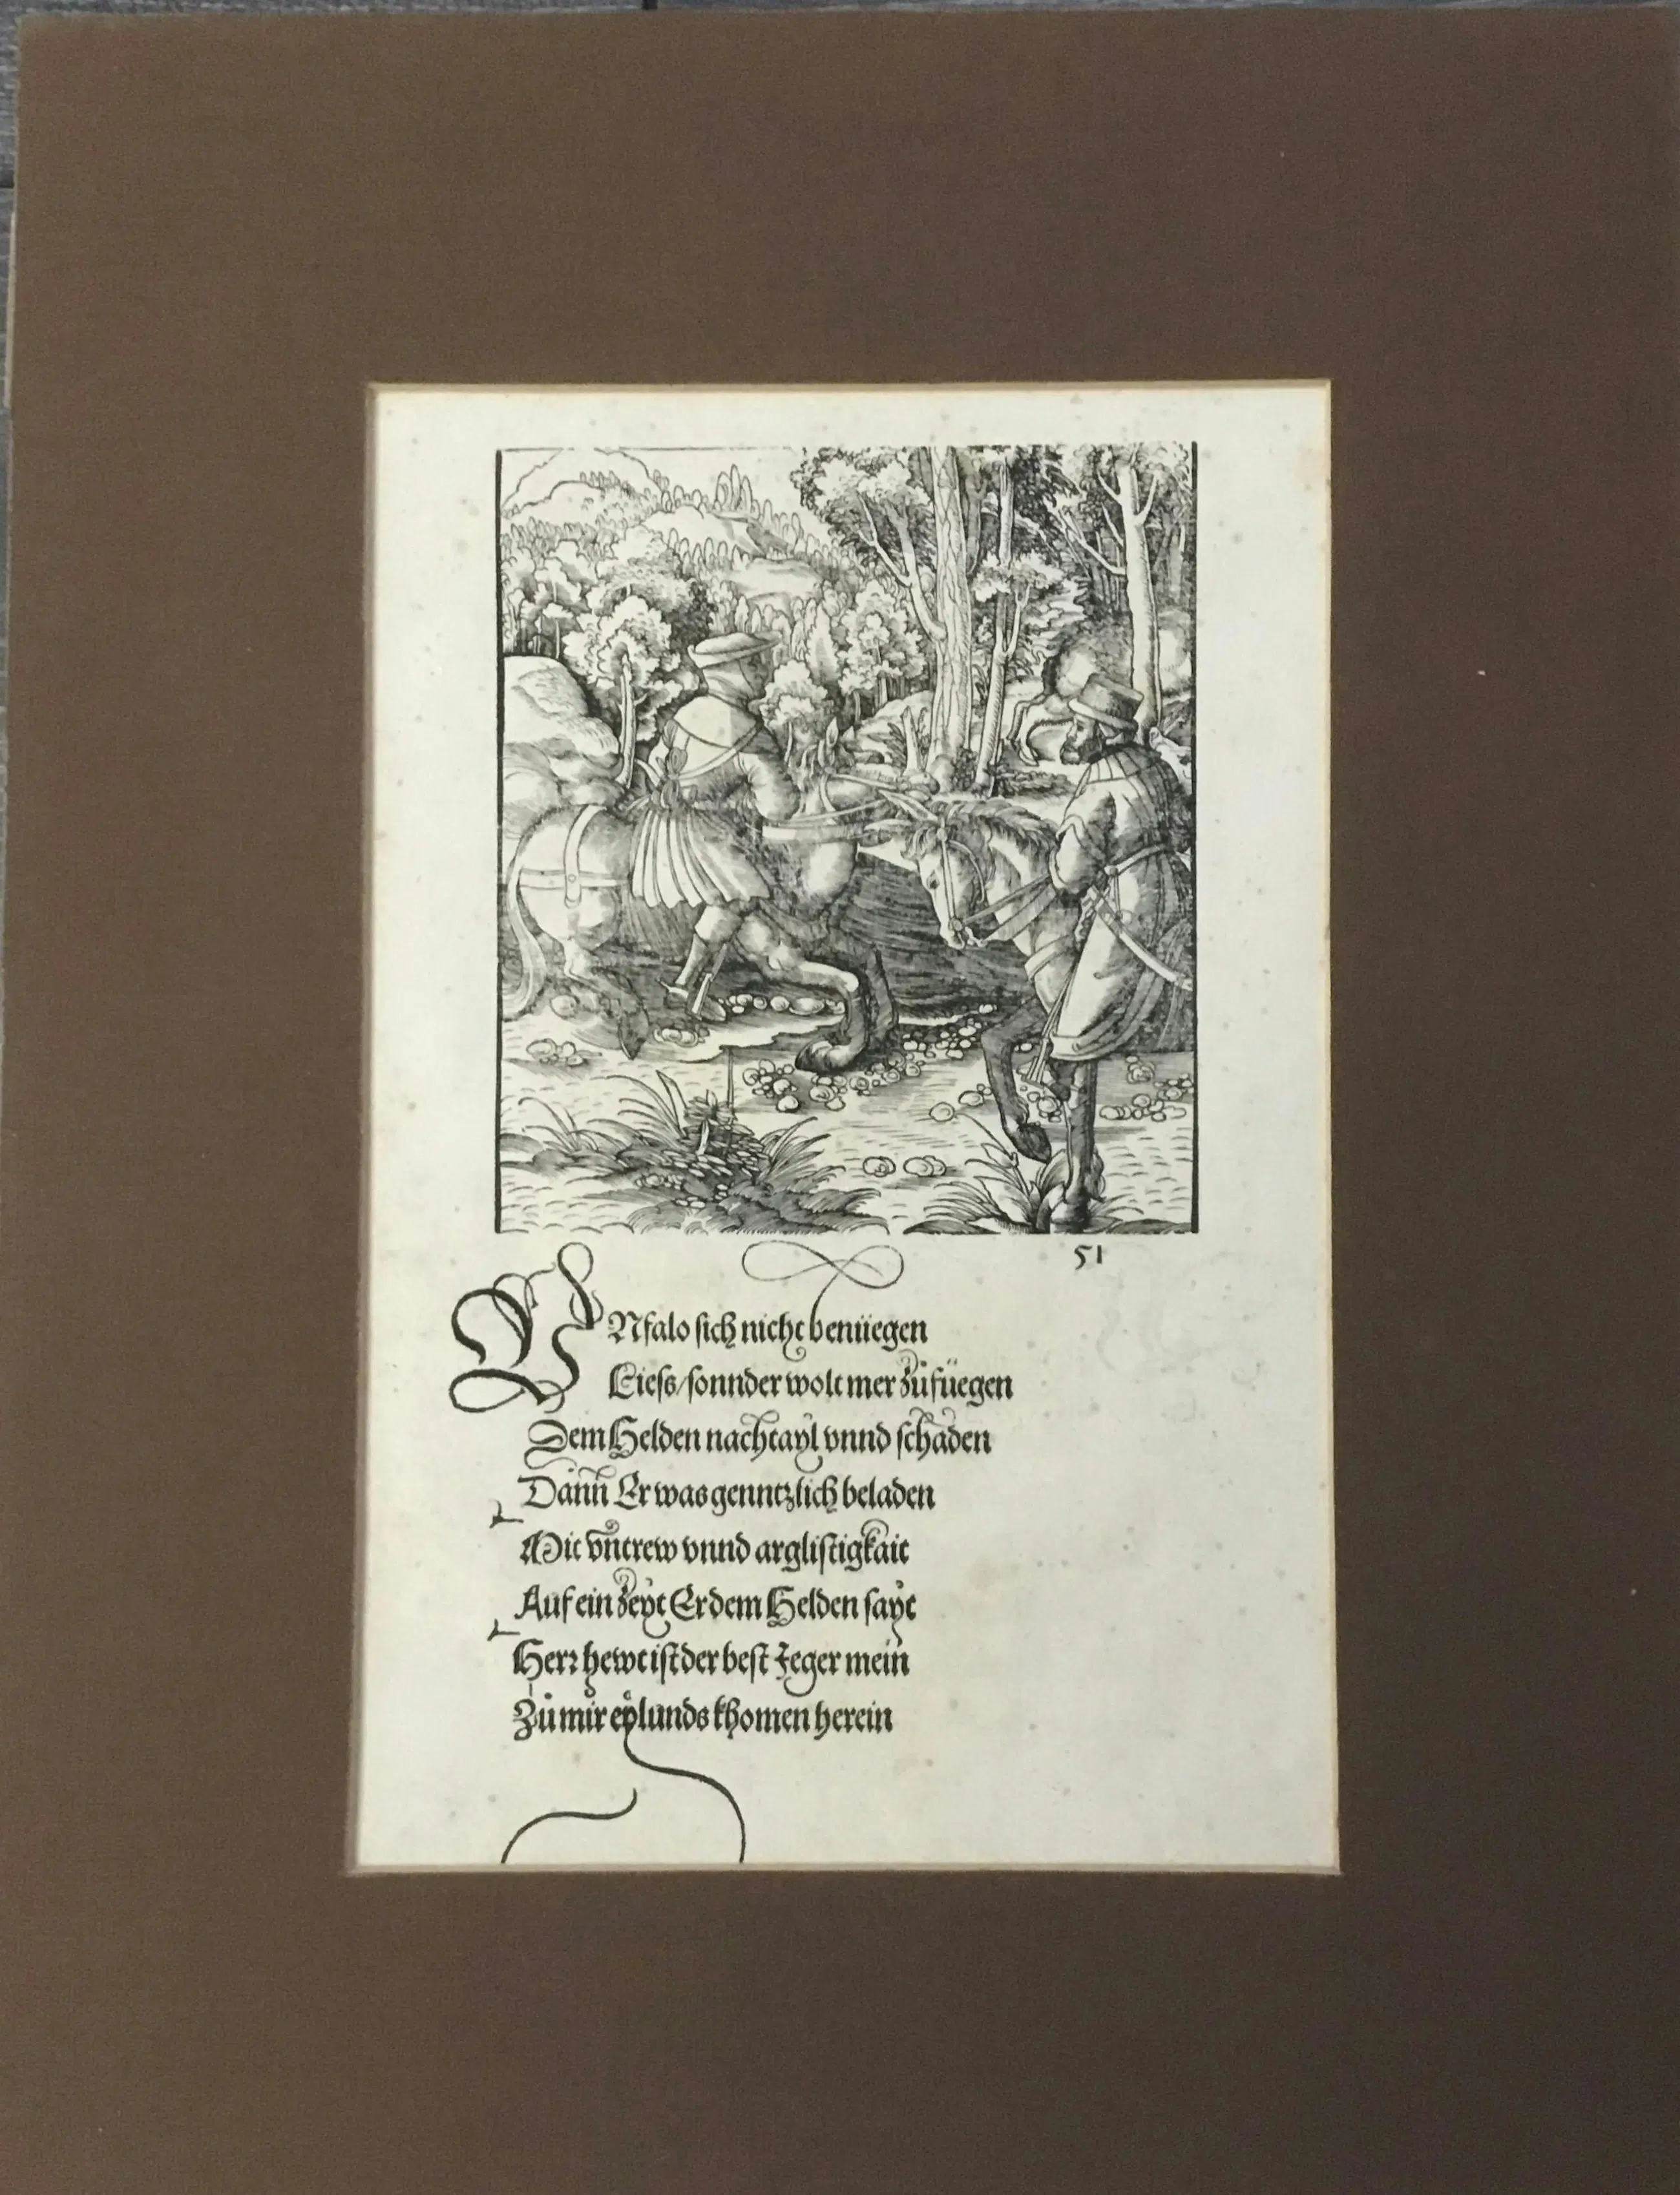 51
VNfalo sich nicht benüegen
Liess/sonnder wolt mer zůfüegen
Dem Helden nachtayl vnnd schaden
Dann Er was genntzlich beladen
Mit vntrew vnnd arglistigkait
Auf ein zeyt Er dem Helden sayt
Herr hewt ist der best Jeger mein
Zů mir eylunds khomen herein